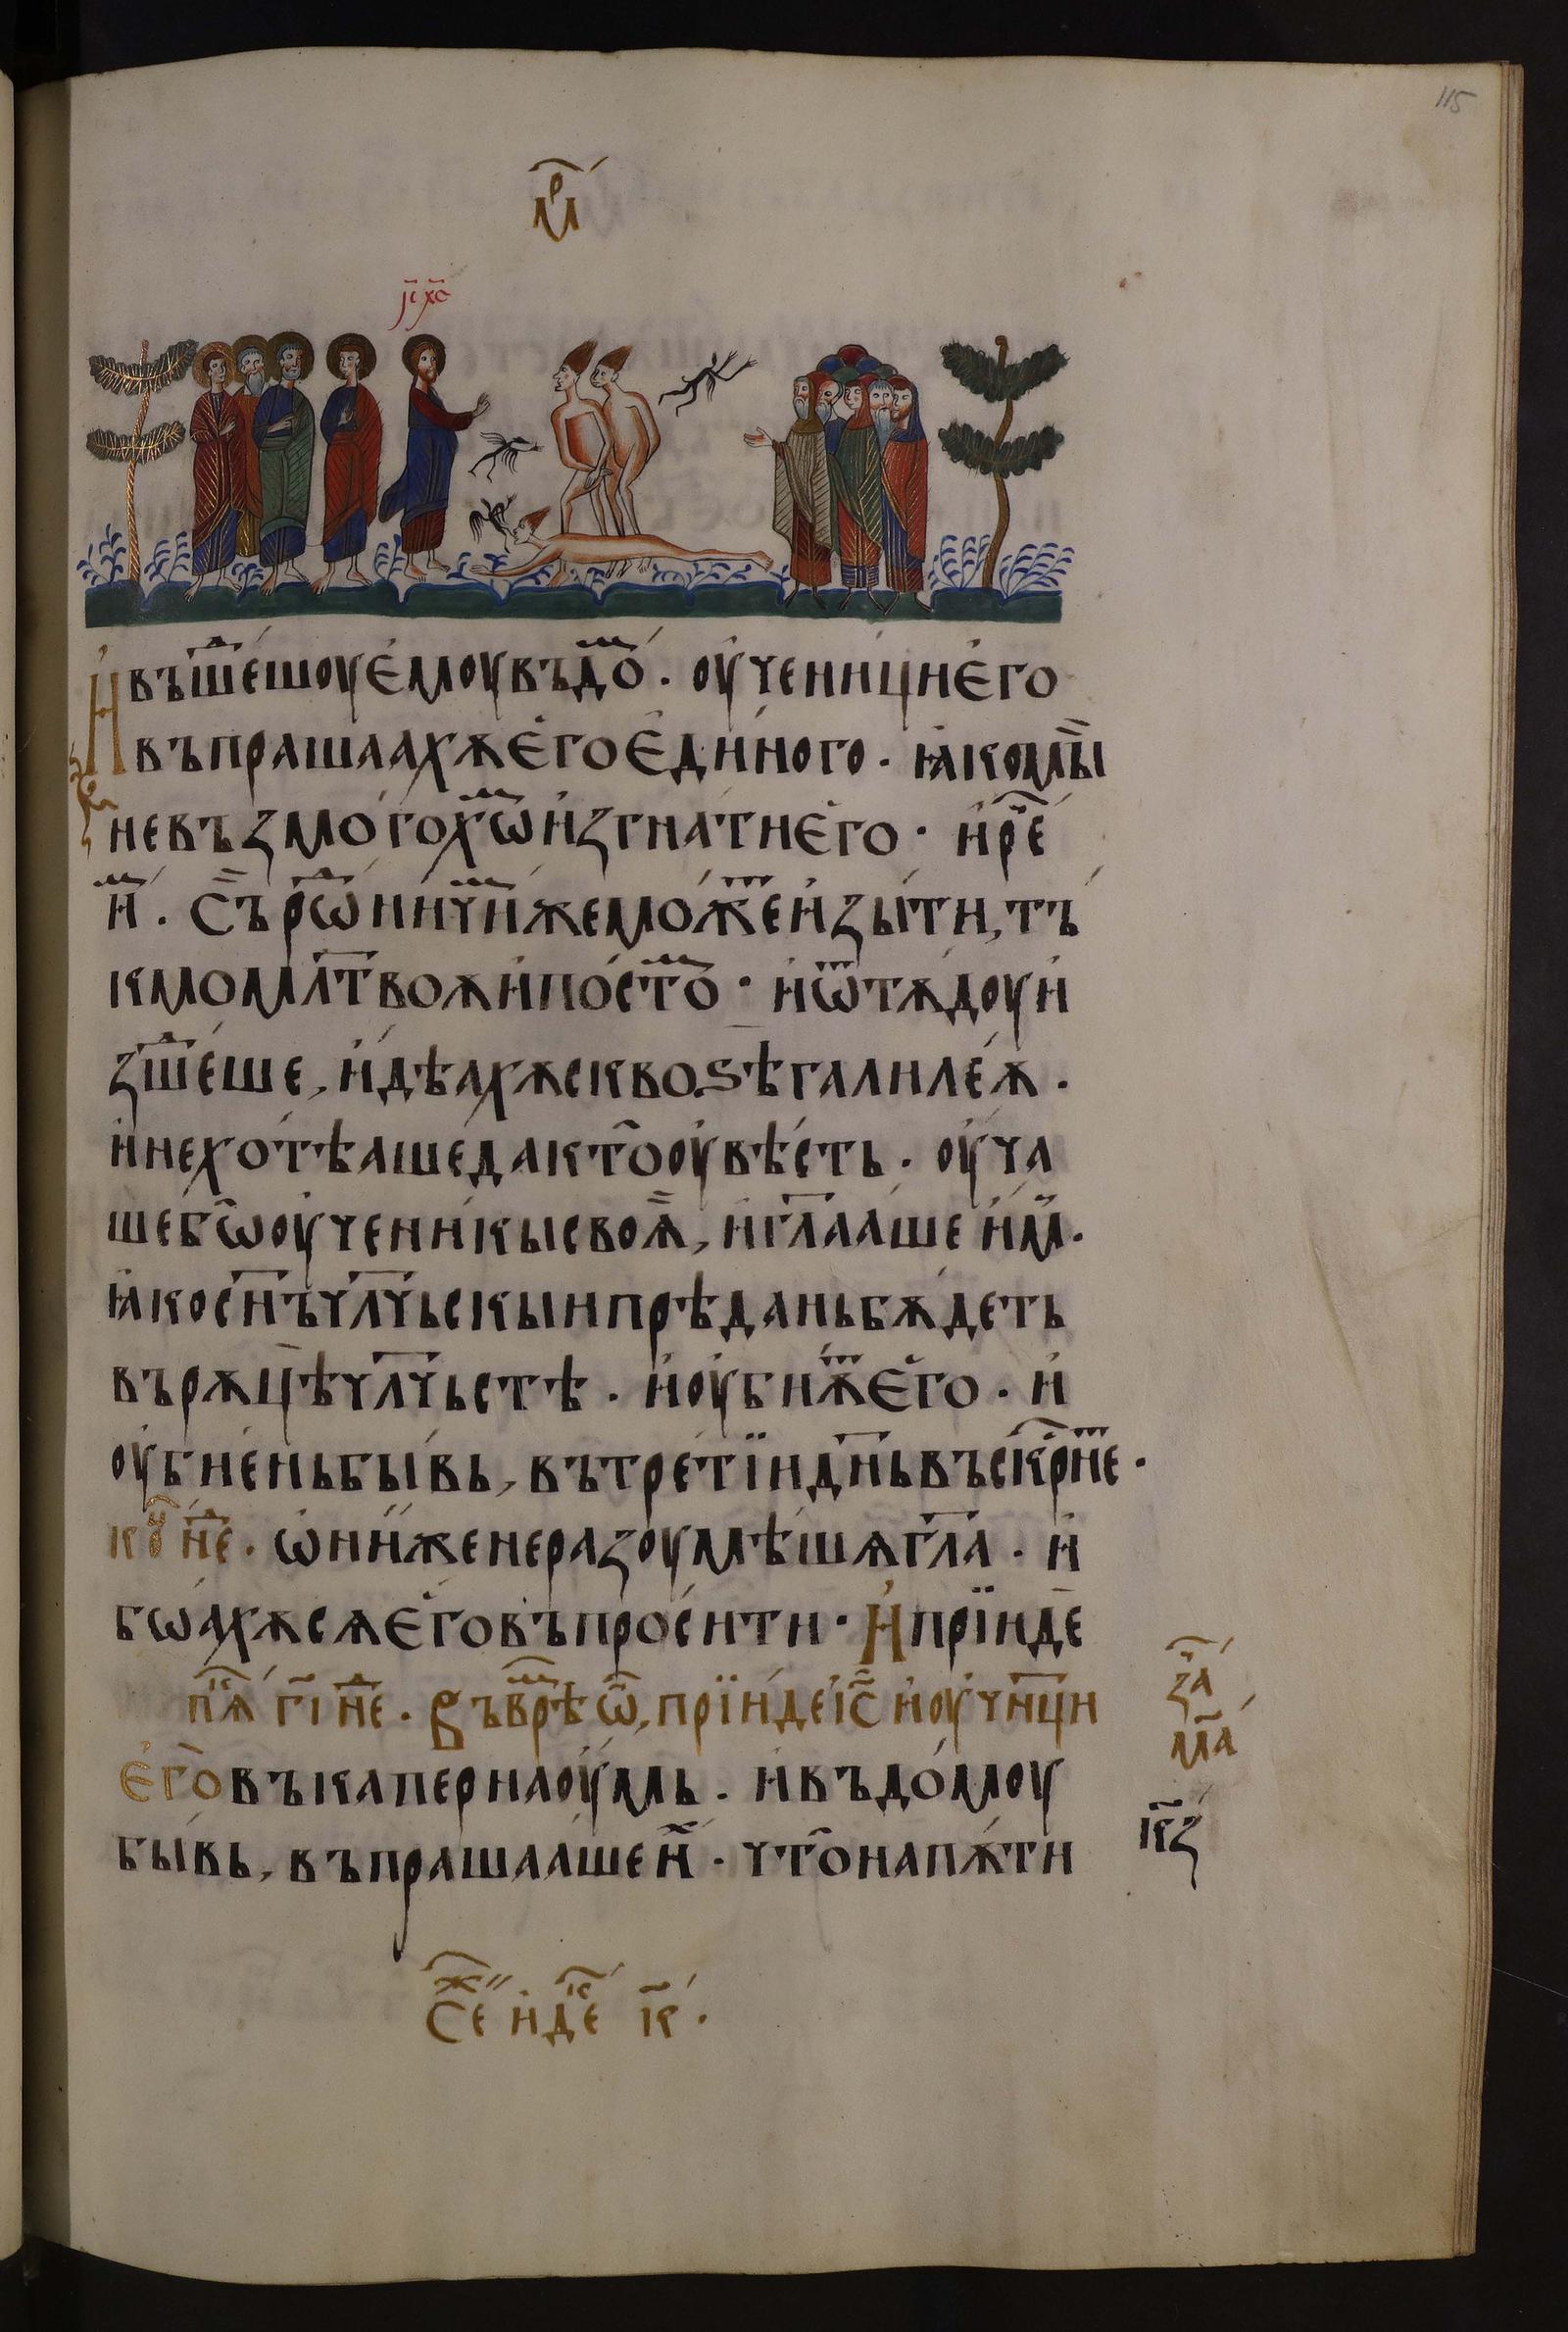 115
мр҃
і҃с х҃с
И҆въше́шоуе҆моувъдо́ᷨ · оу҆чени́цие҆го
въпрашаахѫе҆гое҆ди́ного · ꙗ҆комы̏
невъзмо́гохѡᷨи҆згна́тие҆го · и҆ре҃
и҆ᷨ · Съ̏рѡᷣни́чи́ᷨжемо́жеᷮи҆зы́ти, тъ
кмомл҃твоѫи҆по́стоᷨ · и҆ѿтѫ́доуи҆
зше́ᷣше, и҆дѣахѫсквоѕѣгалиле́ѫ ·
и҆нехо́тѣашеда́кто҆оу҆вѣ́сть · оу҆ча
шебѡ̑оу҆чени́кысвоѧ̏, и҆гл҃аа́ше и҆м̏ ·
ꙗ҆косн҃ъчл҃чьскыипрѣ́даньбѫ́деть
върѫцѣ́чл҃чьстѣ · и҆оу҆бию́ᷮе҆го · и҆
оу҆бие́ньбы́вь, вътре́тїидн҃ьвъскрⷭ҇неᷮ ·
коⷩ҇ неᷣ · ѡ҆ни́женеразоумѣ́шѧгл҃а · и҆
боа́хѫсѧе҆говъпроси́ти · И҆прїи́де
пⷭ҇ѧ г҃і неᷣ · Въврѣᷨѡ҆, прїи́деі҆с҃ и҆оу҆чн҃ци
е҆говъкапернаоу́мь · и҆въдо́моу
бы́вь, въпрашаа́шеи҆ᷯ · что̑напѫ́ти
за
м҃а
к҃з
Сеᷤ и҆деⷭ҇ к҃ ·